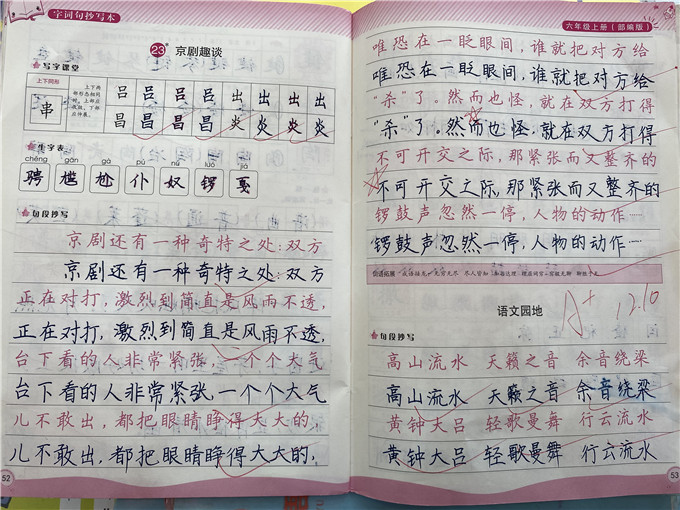 字词句抄写本
23 京剧趣谈
写字课堂
上下同形
串
上下两部形态相同时,上部应收敛,下部应伸展。
吕 吕 吕 吕 出 出 出 出
昌 昌 昌 昌 炎 炎 炎 炎
生字表
chěng gān gà pú nú luó jiá
骋 尴 尬 仆 奴 锣 戛
句段抄写
京剧还有一种奇特之处:双方
京剧还有一种奇特之处:双方
正在对打,激烈到简直是风雨不透,
正在对打,激烈到简直是风雨不透,
台下看的人非常紧张,一个个大气
台下看的人非常紧张,一个个大气
儿不敢出,都把眼睛睁得大大的,
儿不敢出,都把眼睛睁得大大的,
52
六年级上册(部编版)
唯恐在一眨眼间,谁就把对方给
唯恐在一眨眼间,谁就把对方给
“杀”了。然而也怪,就在双方打得
“杀”了。然而也怪,就在双方打得
不可开交之际,那紧张而又整齐的
不可开交之际,那紧张而又整齐的
锣鼓声忽然一停,人物的动作……
锣鼓声忽然一停,人物的动作……
词语拓展
语文园地
A+ 12.10
句段抄写
高山流水 天籁之音 余音绕梁
高山流水 天籁之音 余音绕梁
黄钟大吕 轻歌曼舞 行云流水
黄钟大吕 轻歌曼舞 行云流水
53